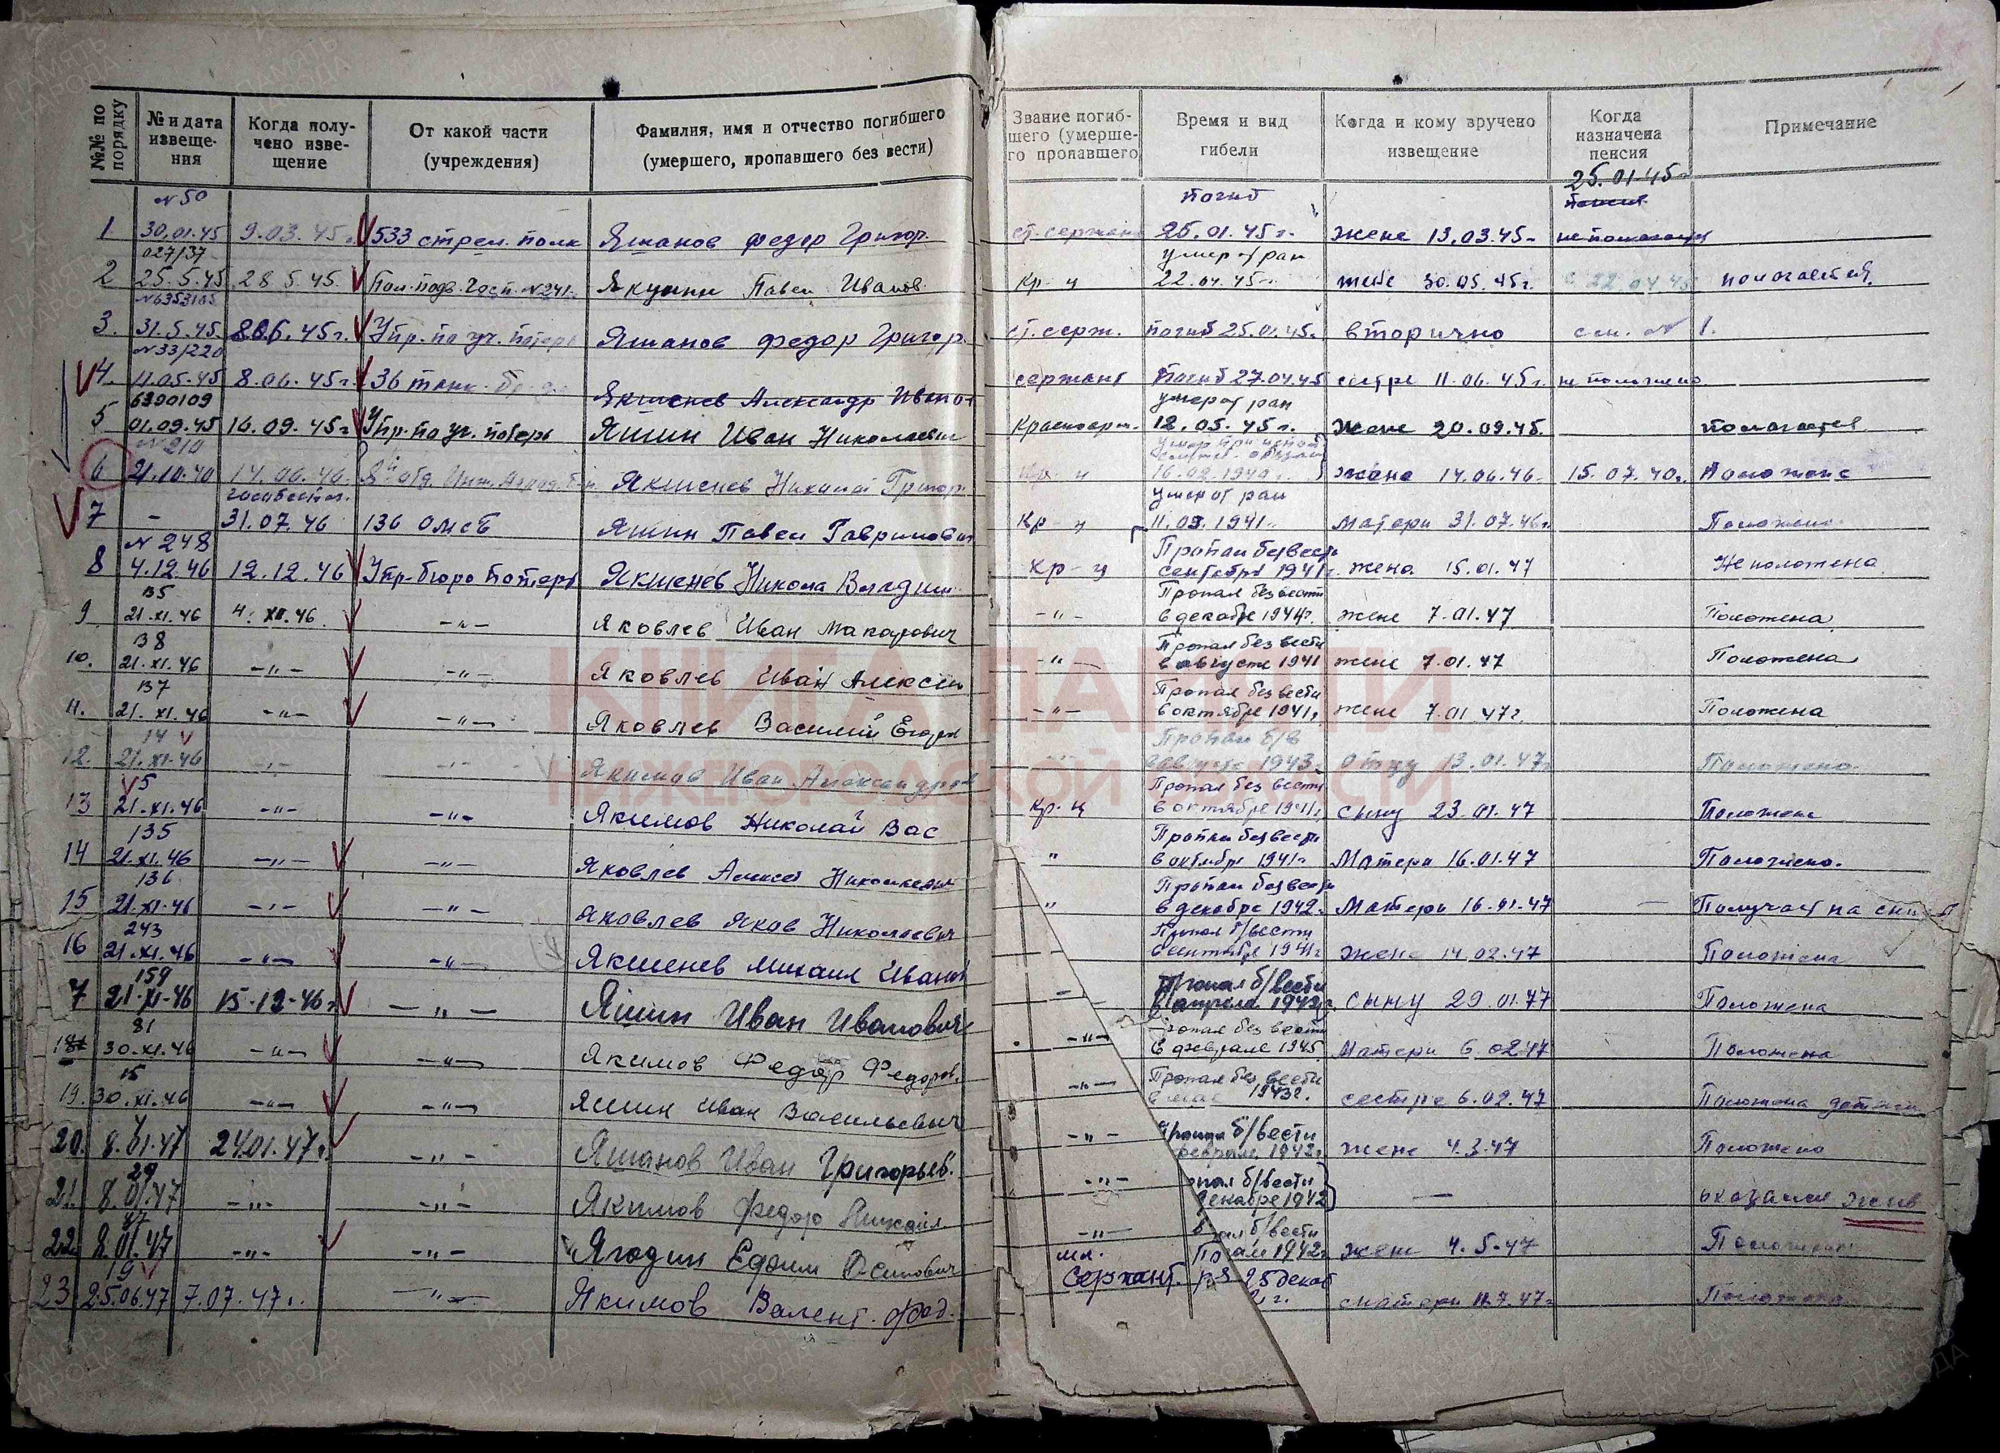 №№ по порядку
№ и дата извещения
Когда полу-
чено изве-
щение
От какой части
(учреждения)
Фамилия, имя и отчество погибшего
(умершего, пропавшего без вести)
Звание погиб-
шего (умерше-
го пропавшего
Время и вид
гибели
Когда и кому вручено
извещение
Когда
назначена
пенсия
Примечание
25.01.45г
№ 50 погиб
1 30.01.45 9.03.45г. 533 стрел. полк Яшанов Федор Григор. ст. сержант 25.01.45г. жене 13.03.45г
027/37 умер от ран
2 25.5.45 28.5.45. Якунин Павел Иванов. кр-ц 22.04.45г. жене 30.05.45г. с 22.04.45 полагается
3. 31.5.45 45г. Яшанов Федор Григор. ст. серж. погиб 25.01.45г. вторично см. № 1.
№33/220
4. 11.05.45 8.06.45г. 36 танк. Якшенев Александр Иванов сержант погиб 27.04.45 сестре 11.06.45г. не положено
6390109 умер от ран
5 01.09.45 16.09.45г Упр. по уч. потерь Яшин Иван Николаевич Красноарм. 12.05.45г. жене 20.09.45. полагается
№ 210
6 14.06.46. Якшенев Николай Григор. кр-ц жене 14.06.46 15.07.40г. Положено
умер от ран
7 - 31.07.46 136 омсб Яшин Павел Гаврилович кр-ц 11.09.1941г. матери 31.07.46г. Положено
№ 248 Пропал без вести
8 4.12.46 12.12.46 Упр. бюро потерь Якшенев Никола Владим. кр-ц сентябрь 1941г. жена 15.01.47 Не положена
135 Пропал без вести
9 21.XI.46 4.XII.46. -"- Яковлев Иван Макарович -"- в декабре 1944г. жене 7.01.47 Положена
138 Пропал без вести
10. 21.XI.46 -"- -"- Яковлев Иван Алексеев -"- в августе 1941 жене 7.01.47 Положена
137 Пропал без вести
11. 21.XI.46 -"- -"- Яковлев Василий Егоров -"- в октябре 1941г жене 7.01.47г. Положена
14 Пропал б/в
12. 21.XI.46 -"- -"- Якимов Иван Александров в августе 1943г. отцу 13.01.47г. Положено
5 Пропал без вести
13 21.XI.46 -"- -"- Якимов Николай Вас кр-ц в октябре 1941г. сыну 23.01.47 Положено
135 Пропал без вести
14 21.XI.46 -"- -"- Яковлев Алексей Николаевич " в октябре 1941г. Матери 16.01.47 Положено.
136 Пропал без вести
15 21.XI.46 -"- -"- Яковлев Яков Николаевич " в декабре 1942г. Матери 16.01.47 Получает на
243 Пропал б/вести
16 21.XI.46 -"- -"- Якшенев Михаил Иванов в сентябре 1941г жене 14.02.47 Положена
159 пропал б/вести
7 21.XI.46 15-12-46г -"- Яшин Иван Иванович - в апреле 1942г. сыну 29.01.47 Положена
81 Пропал без вести
18 30.XI.46 -"- -"- Якимов Федор Федоров. -"- в феврале 1945 матери 6.02.47 Положена
15 Пропал без вести
19. 30.XI.46 -"- -"- Яшин Иван Васильевич -"- в мае 1943г. сестре 6.02.47 Положена детям
20. 8.01.47 24.01.47г. -"- Яшанов Иван Григорьев. -"- пропал б/вести феврале 1942г. жене 4.3.47 Положено
29
21. 8.01.47 -"- -"- Якимов Федор Михайл -"- пал б/вести декабре 1942 — оказался жив
47
22 8.01.47 -"- -"- Ягодин Ефим Осипович -"- пал б/вести 1942г жене 4.5.47
19 мл.
23 25.06.47 7.07.47г. -"- Якимов Валент. Фед. сержант 25 декаб матери 11.7.47г Положена
КНИГА ПАМЯТИ
НИЖЕГОРОДСКОЙ ОБЛАСТИ
ПАМЯТЬ
НАРОДА